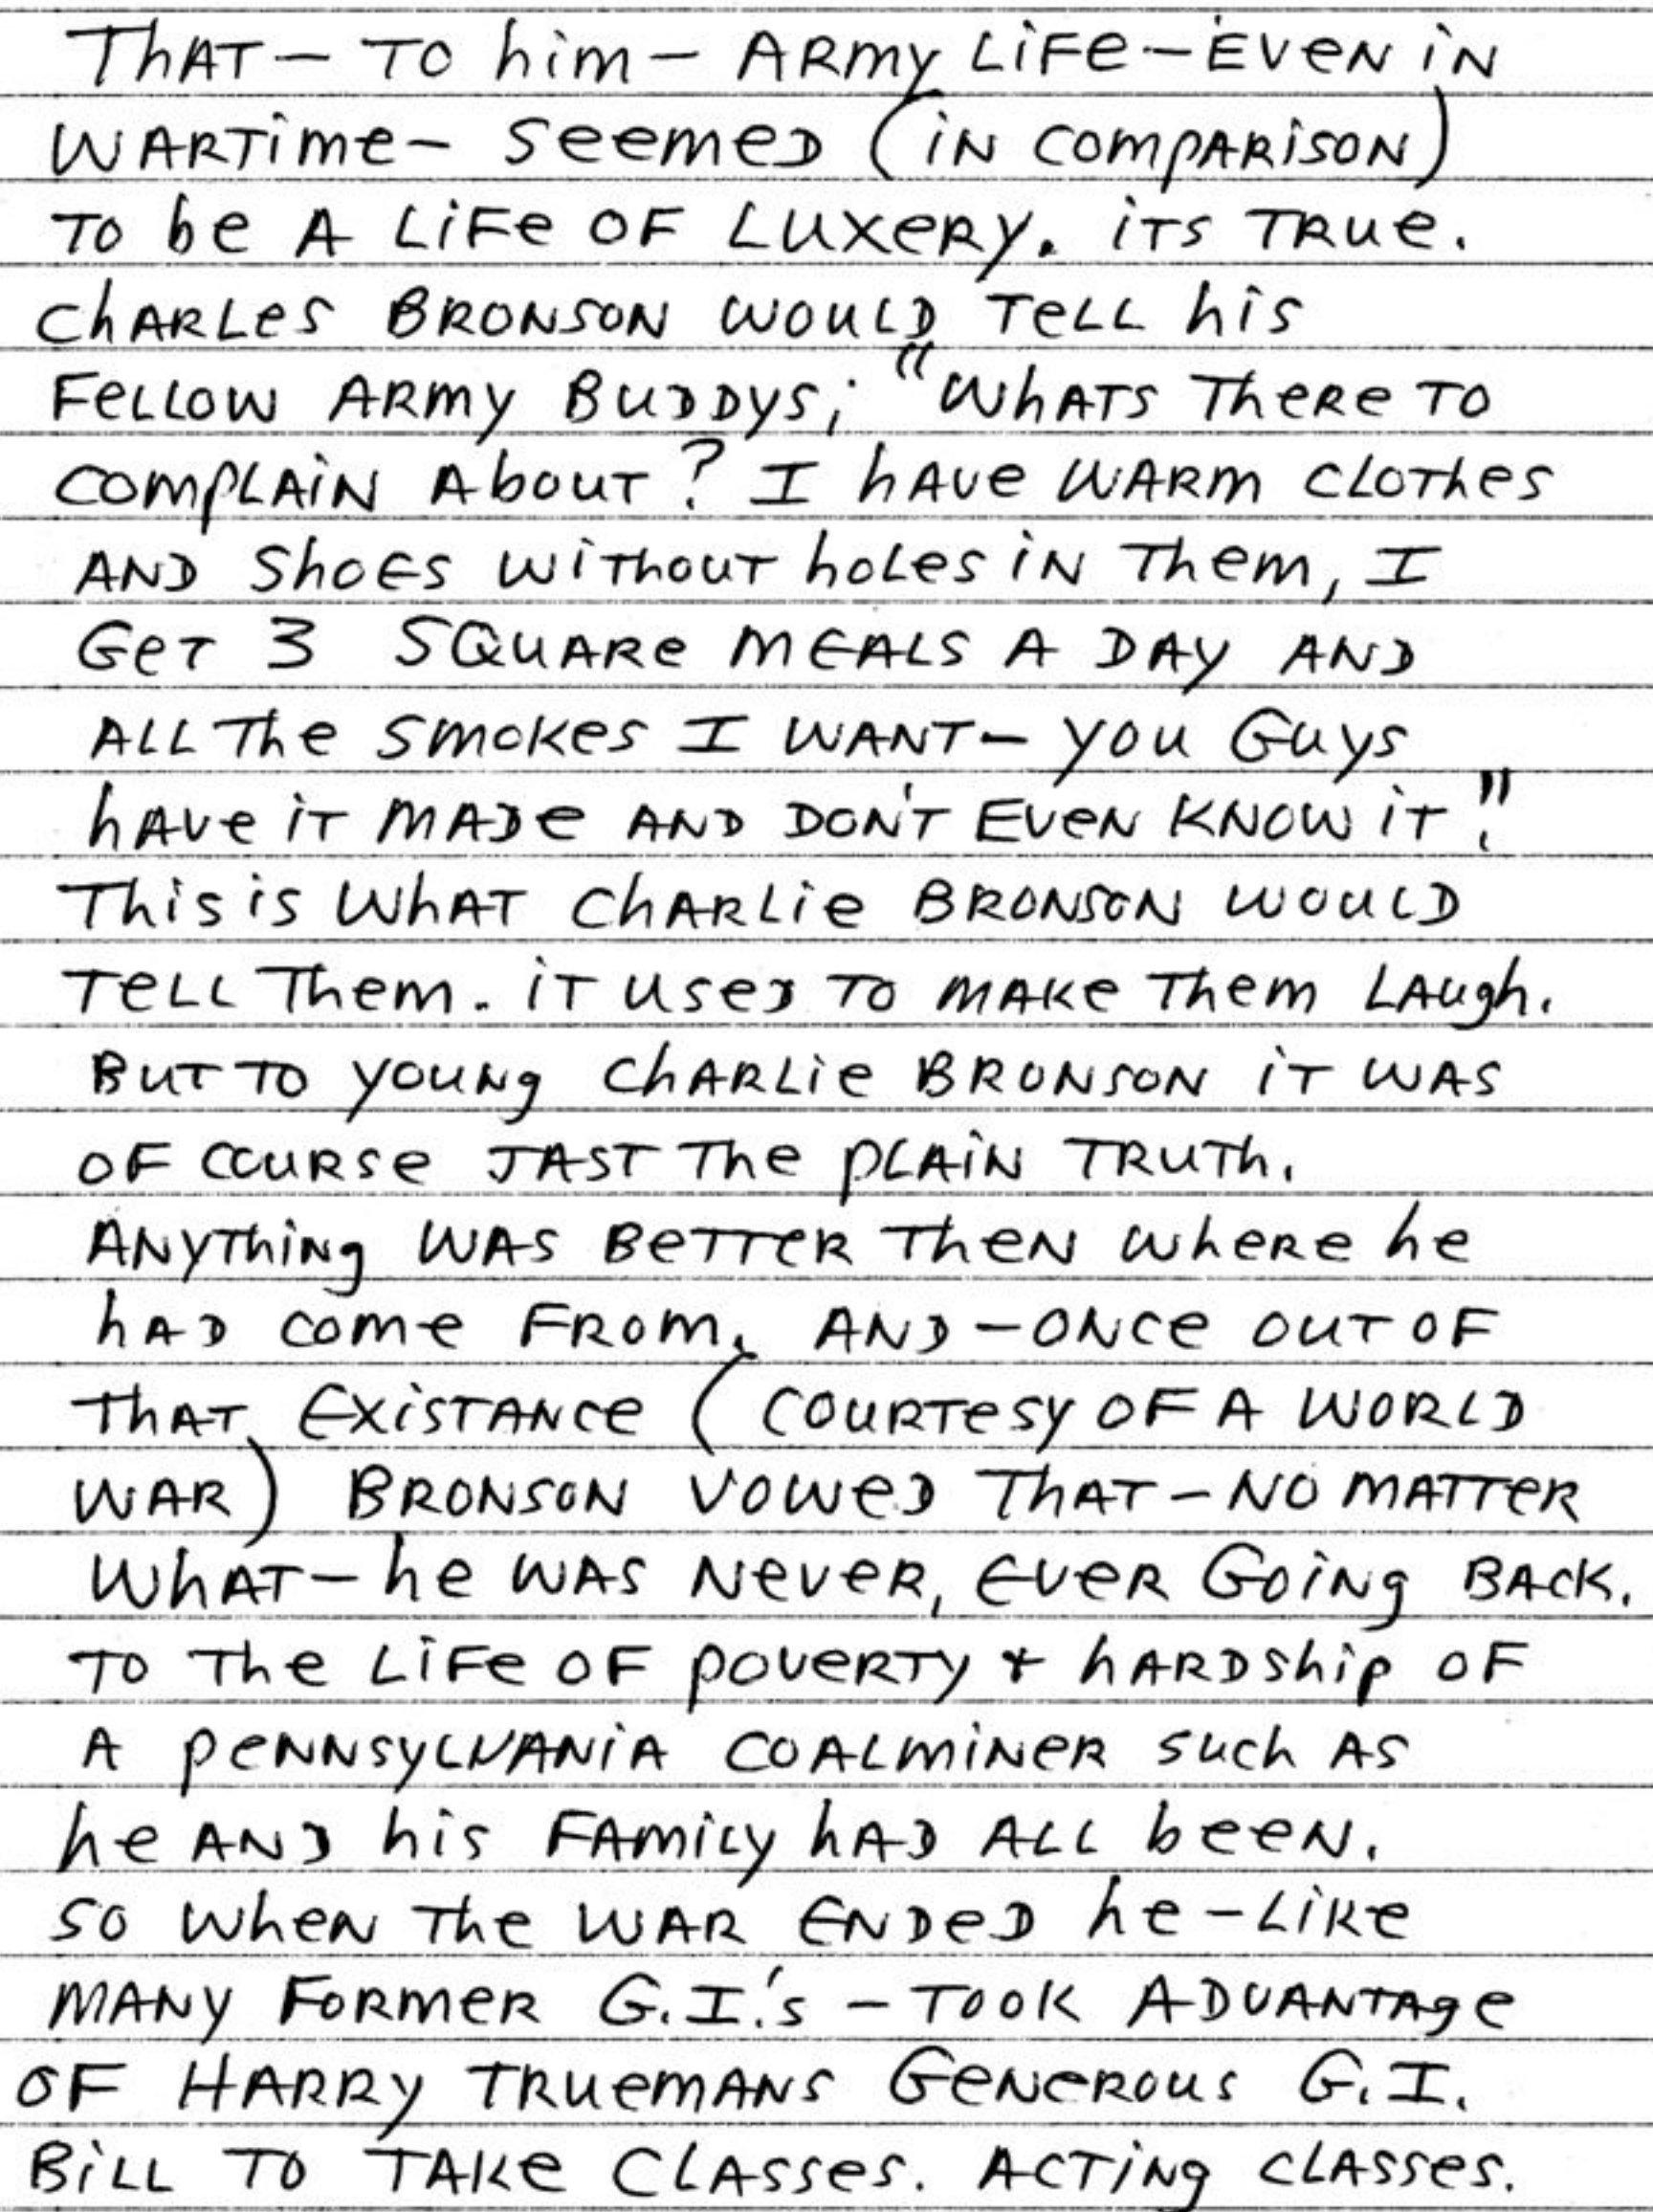 THAT – TO him – ARmy LiFe – EVeN iN
WARTime – SeemeD (iN COmpARiSON)
TO be A LiFe OF LUXeRy. iTS TRUe.
ChARLeS BRONSON WOULD TeLL hiS
FeLLOW ARmy BUDDyS; "WhATS TheRe TO
COmpLAiN AbOUT? I hAVe WARm CLOTheS
AND ShOES WiThOUT hOLeS iN Them, I
GeT 3 SQUARe MEALS A DAy AND
ALL The SmOKeS I WANT – yOU GuyS
hAVe iT MADe AND DON'T EVeN KNOW iT!"
ThiS iS WhAT ChARLie BRONSON WOULD
TeLL Them. iT USeD TO mAKe Them LAugh.
BUT TO yOUNg ChARLie BRONSON iT WAS
OF COURSe JAST The pLAiN TRUTh.
ANyThiNg WAS BeTTeR TheN WheRe he
hAD COme FROm. AND – ONCe OUT OF
ThAT EXiSTANCe (COURTeSy OF A WORLD
WAR) BRONSON VOWeD ThAT – NO mATTeR
WhAT – he WAS NeVeR, EVeR GOiNg BACK.
TO The LiFe OF pOVeRTy + hARDShip OF
A peNNSyLVANiA COALmiNeR SUCh AS
he AND hiS FAmiLy hAD ALL beeN.
SO WheN The WAR ENDeD he – LiKe
MANy FORmeR G.I.'s – TOOK ADVANTAge
OF HARRy TRUemANS GeNeROUS G.I.
BiLL TO TAKe CLASSeS. ACTiNg CLASSeS.